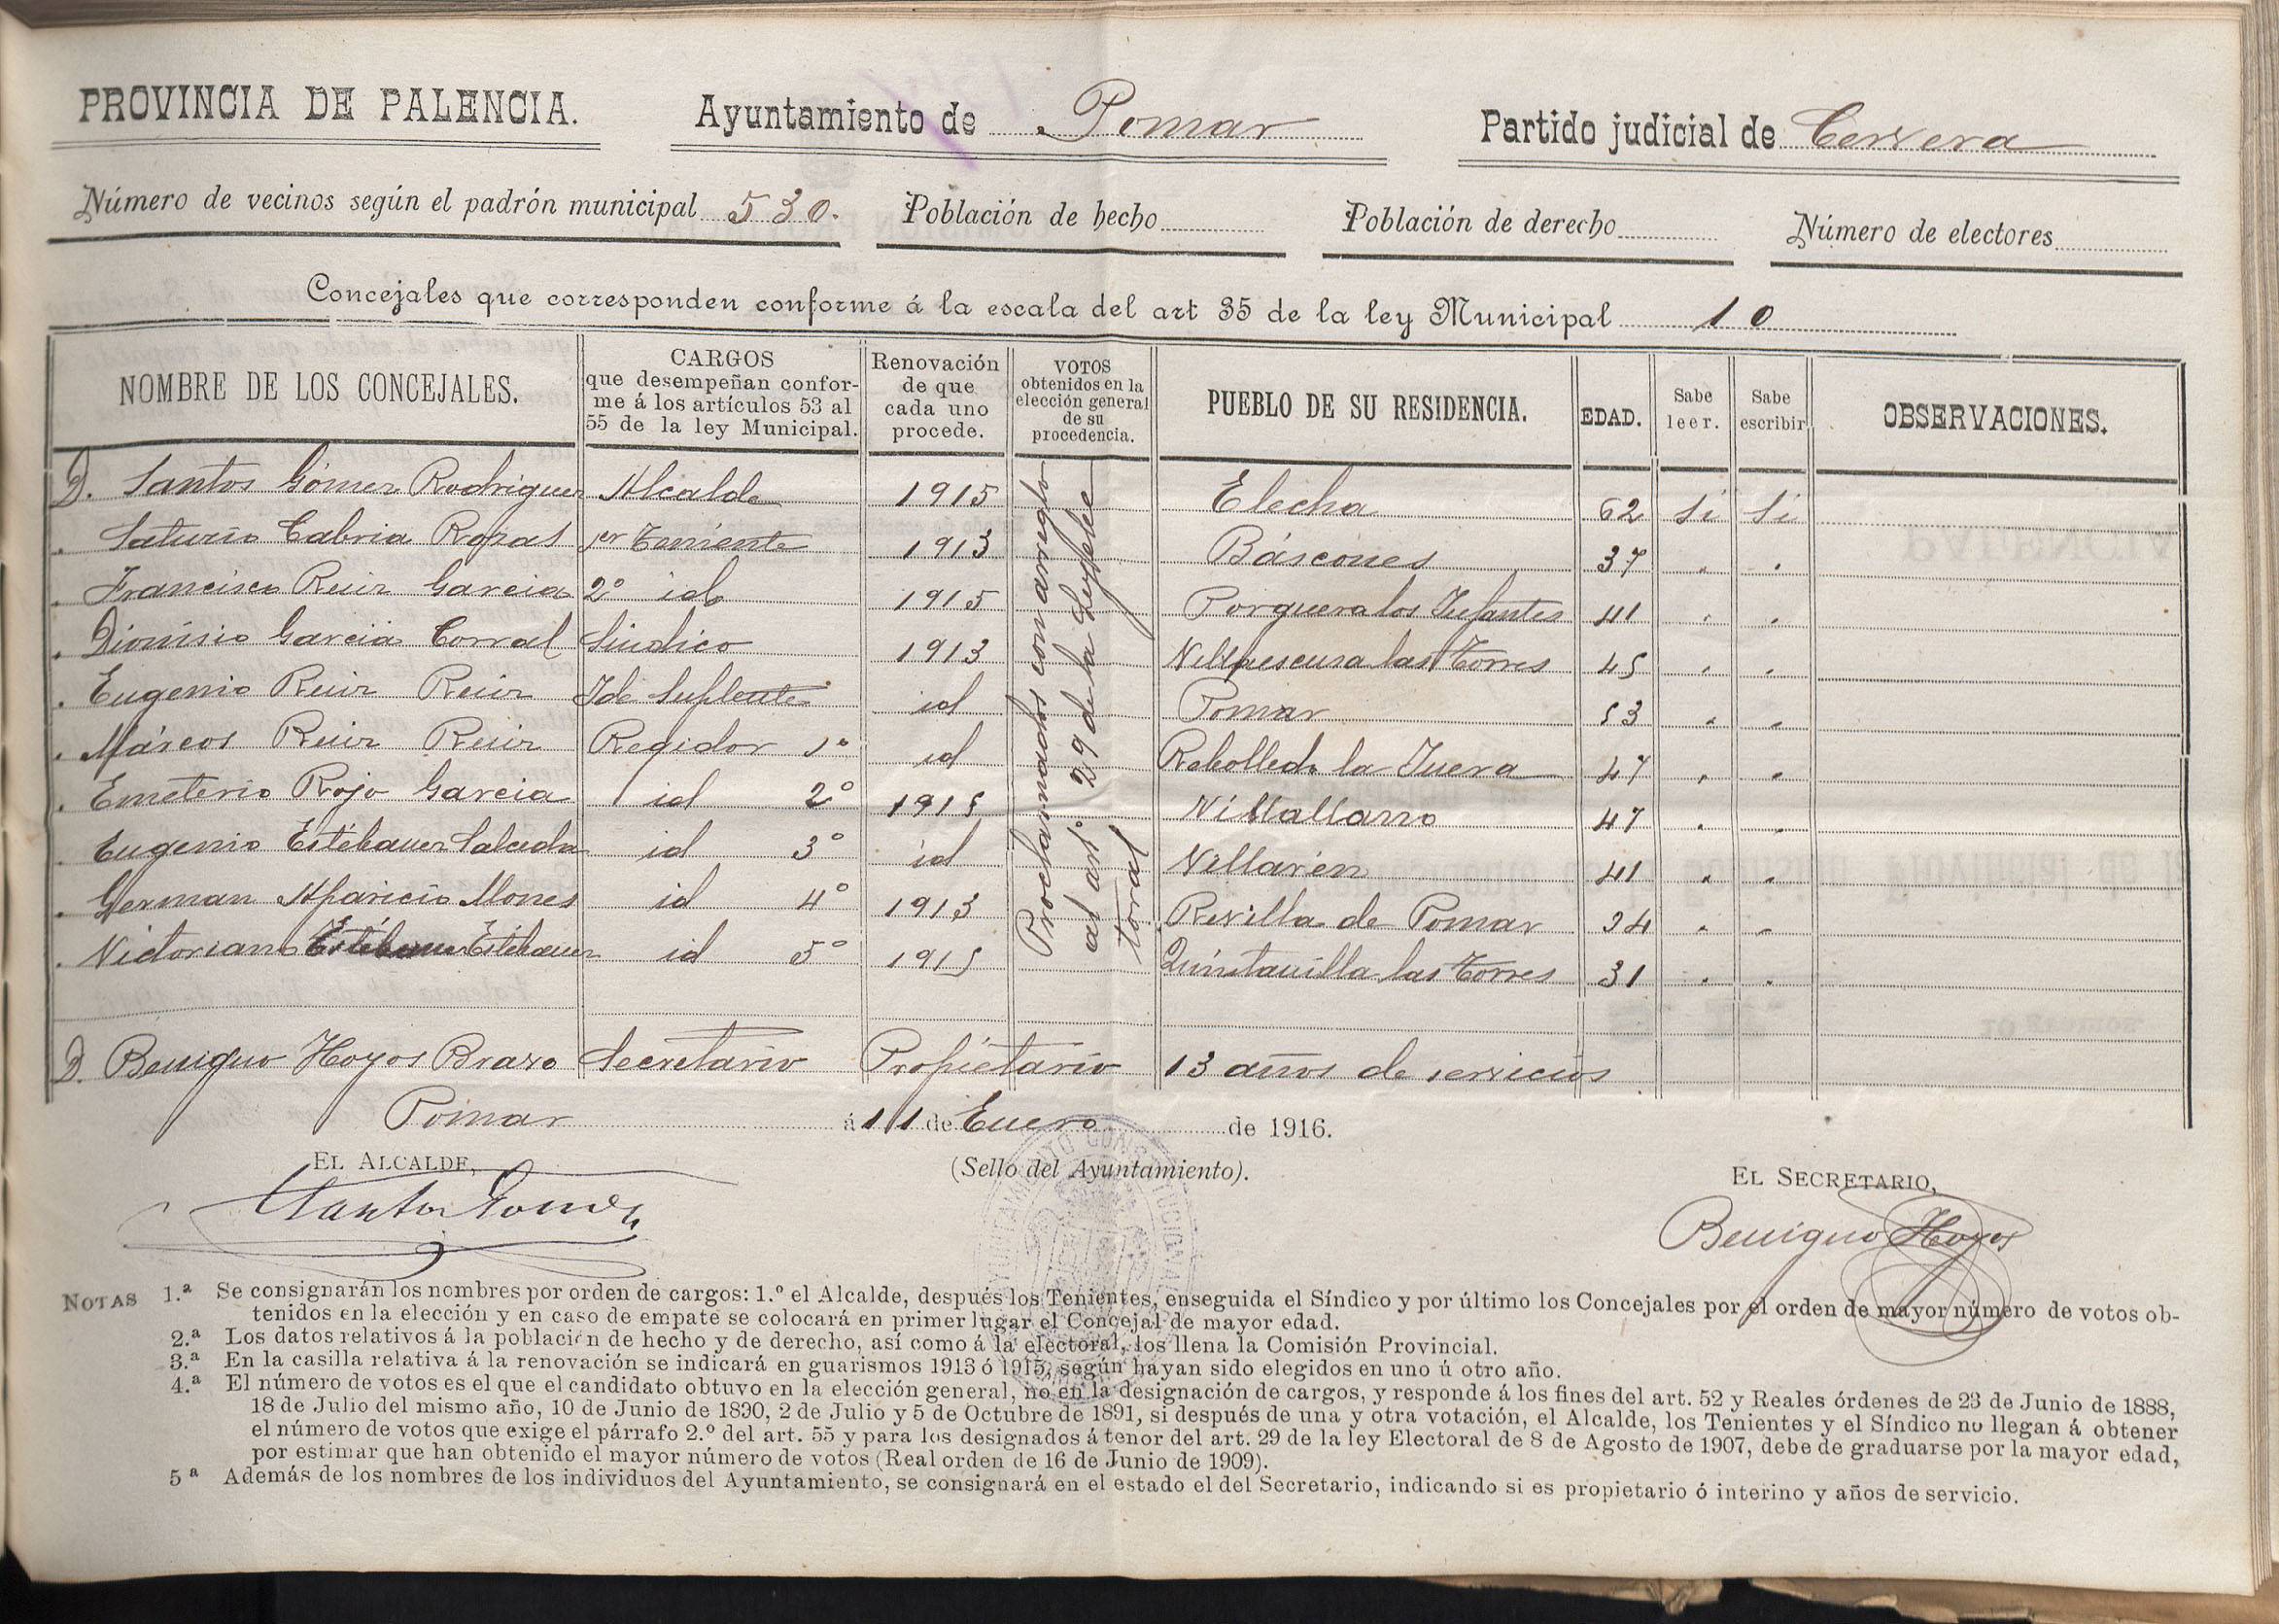 PROVINCIA DE PALENCIA. Ayuntamiento de Pomar Partido judicial de Cervera
Número de vecinos según el padrón municipal 530. Población de hecho Población de derecho Número de electores
Concejales que corresponden conforme á la escala del art 35 de la ley Municipal 10
NOMBRE DE LOS CONCEJALES. CARGOS que desempeñan confor-me á los artículos 53 al 55 de la ley Municipal. Renovación de que cada uno procede. VOTOS obtenidos en la elección general de su procedencia. PUEBLO DE SU RESIDENCIA. EDAD. Sabe leer. Sabe escribir OBSERVACIONES.
D. Santos Gómez Rodriguez Alcalde 1915 Elecha 62 Si Si
" Saturio Cabria Rozas 1er Teniente 1913 Báscones 37 " "
" Francisco Ruiz Garcia 2º id 1915 Porquera los Infantes 41 " "
" Dionisio Garcia Corral Sindico 1913 Villaescusa las Torres 45 " "
" Eugenio Ruiz Ruiz Id Suplente id Pomar 53 " "
" Márcos Ruiz Ruiz Regidor 1º id Rebolledo la Inera 47 " "
" Emeterio Rojo Garcia id 2º 1915 Villallano 47 " "
" Eugenio Estébanez Salceda id 3º id Villarén 41 " "
" German Aparicio Mones id 4º 1913 Revilla de Pomar 34 " "
" Victoriano Estébanez id 5º 1915 Quintanilla las Torres 31 " "
Proclamados con arreglo
al artº 29 de la Ley elec
toral
D. Benigno Hoyos Bravo Secretario Propietario 13 años de servicios
Pomar á 11 de Enero de 1916.
EL ALCALDE, (Sello del Ayuntamiento). EL SECRETARIO,
Santos Gomez Benigno Hoyos
NOTAS 1.ª Se consignarán los nombres por orden de cargos: 1.º el Alcalde, después los Tenientes, enseguida el Síndico y por último los Concejales por el orden de mayor número de votos ob-
tenidos en la elección y en caso de empate se colocará en primer lugar el Concejal de mayor edad.
2.ª Los datos relativos á la población de hecho y de derecho, así como á la electoral, los llena la Comisión Provincial.
3.ª En la casilla relativa á la renovación se indicará en guarismos 1913 ó 1915, según hayan sido elegidos en uno ú otro año.
4.ª El número de votos es el que el candidato obtuvo en la elección general, no en la designación de cargos, y responde á los fines del art. 52 y Reales órdenes de 23 de Junio de 1888,
18 de Julio del mismo año, 10 de Junio de 1890, 2 de Julio y 5 de Octubre de 1891, si después de una y otra votación, el Alcalde, los Tenientes y el Síndico no llegan á obtener
el número de votos que exige el párrafo 2.º del art. 55 y para los designados á tenor del art. 29 de la ley Electoral de 8 de Agosto de 1907, debe de graduarse por la mayor edad,
por estimar que han obtenido el mayor número de votos (Real orden de 16 de Junio de 1909).
5ª Además de los nombres de los individuos del Ayuntamiento, se consignará en el estado el del Secretario, indicando si es propietario ó interino y años de servicio.